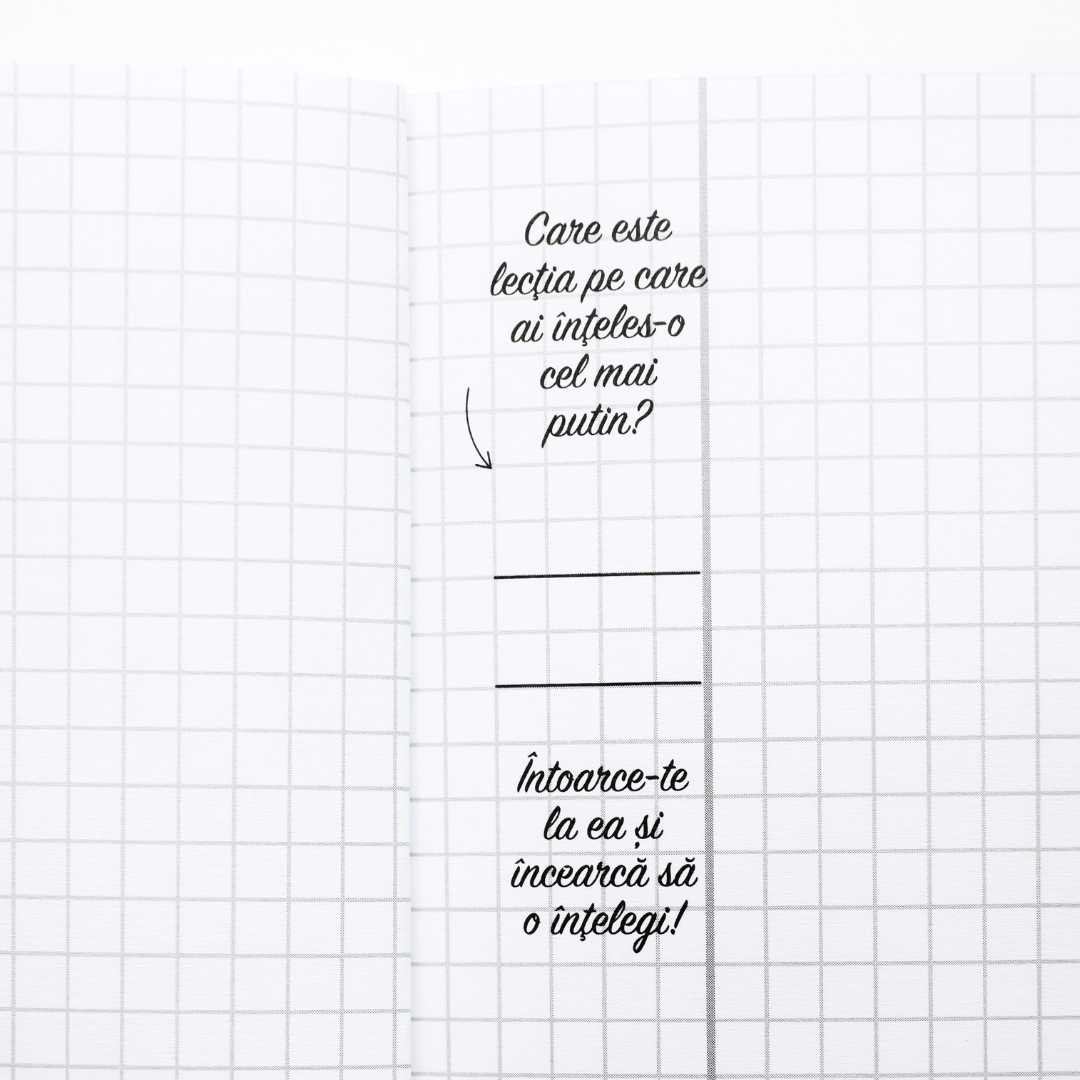 Care este
lecţia pe care
ai înţeles-o
cel mai
putin?
Întoarce-te
la ea și
încearcă să
o înţelegi!